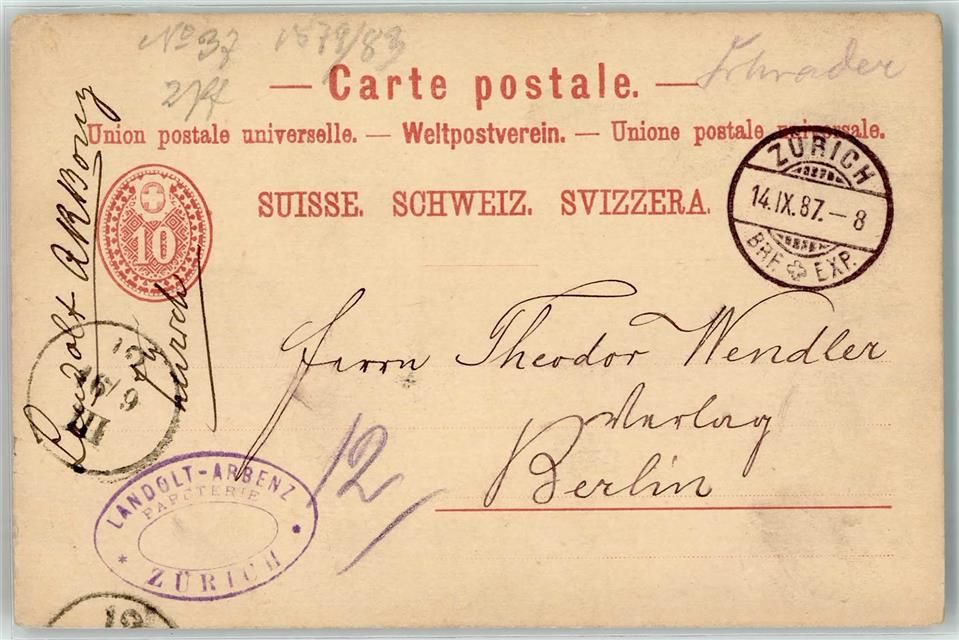 No 37 1879/83
Schrader
— Carte postale. —
Union postale universelle. — Weltpostverein. — Unione postale universale.
SUISSE. SCHWEIZ. SVIZZERA.
10
ZÜRICH
14.IX.87.—8
BRF. EXP.
Herrn Theodor Wendler
Verlag
Berlin
12
Landolt
Zürich
LANDOLT-ARBENZ
PAPETERIE
* ZÜRICH *